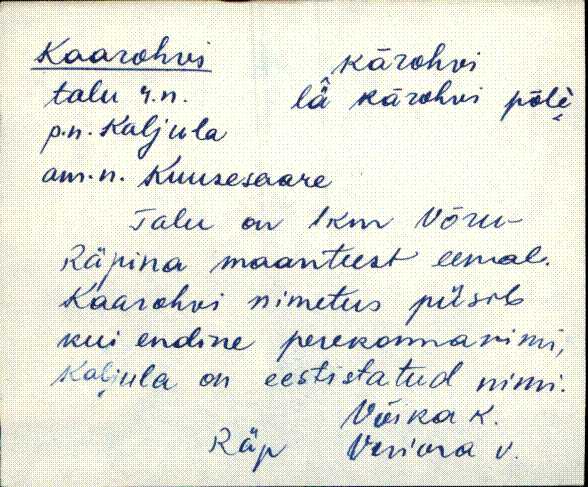 Kaarohvi kārohvi
talu r.n. lā̂ kārohvi põlè
p.n. Kaljula
am.n. Kuusesaare
Talu on 1km Võru-
Räpina maanteest eemal.
Kaarohvi nimetus püsib
kui endine perekonnanimi,
Kaljula on eestistatud nimi.
Võika k.
Räp Veriora v.